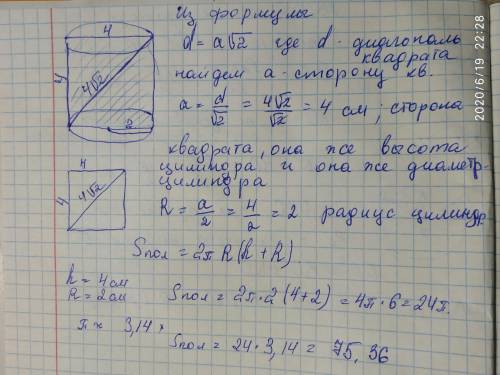 Из формулы
d = a√2 где d - диагональ
квадрата
найдем a - сторону кв.
a = d/√2 = 4√2/√2 = 4 см; сторона
квадрата, она же высота
цилиндра и она же диаметр
цилиндра
R = a/2 = 4/2 = 2 радиус цилиндр
Sпол = 2π R (h + R)
h = 4 см
R = 2 см
Sпол = 2π·2 (4+2) = 4π·6 = 24π.
π ≈ 3,14
Sпол = 24·3,14 = 75,36
4
4
4√2
2
4
4
4√2
2020/6/19 22:28